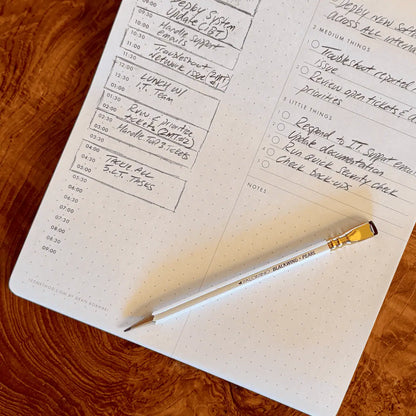 09:00
Deploy System
09:30
Update (I.T.)
10:00
10:30
Handle Support
11:00
emails
11:30
Troubleshoot
12:00
Network issue
12:30
01:00
Lunch w/
01:30
I.T. Team
02:00
02:30
Review & prioritize
03:00
tickets
03:30
Handle Top 3 Tickets
04:00
04:30
Tackle All
05:00
S.L.T. Tasks
05:30
06:00
06:30
07:00
07:30
08:00
08:30
09:00
Deploy new
across all internal
3 MEDIUM THINGS
Troubleshoot reported
issue
Review open tickets &
priorities
5 LITTLE THINGS
Respond to I.T. Support email
Update documentation
Run quick security check
Check back ups
NOTES
PALOMINO BLACKWING PEARL